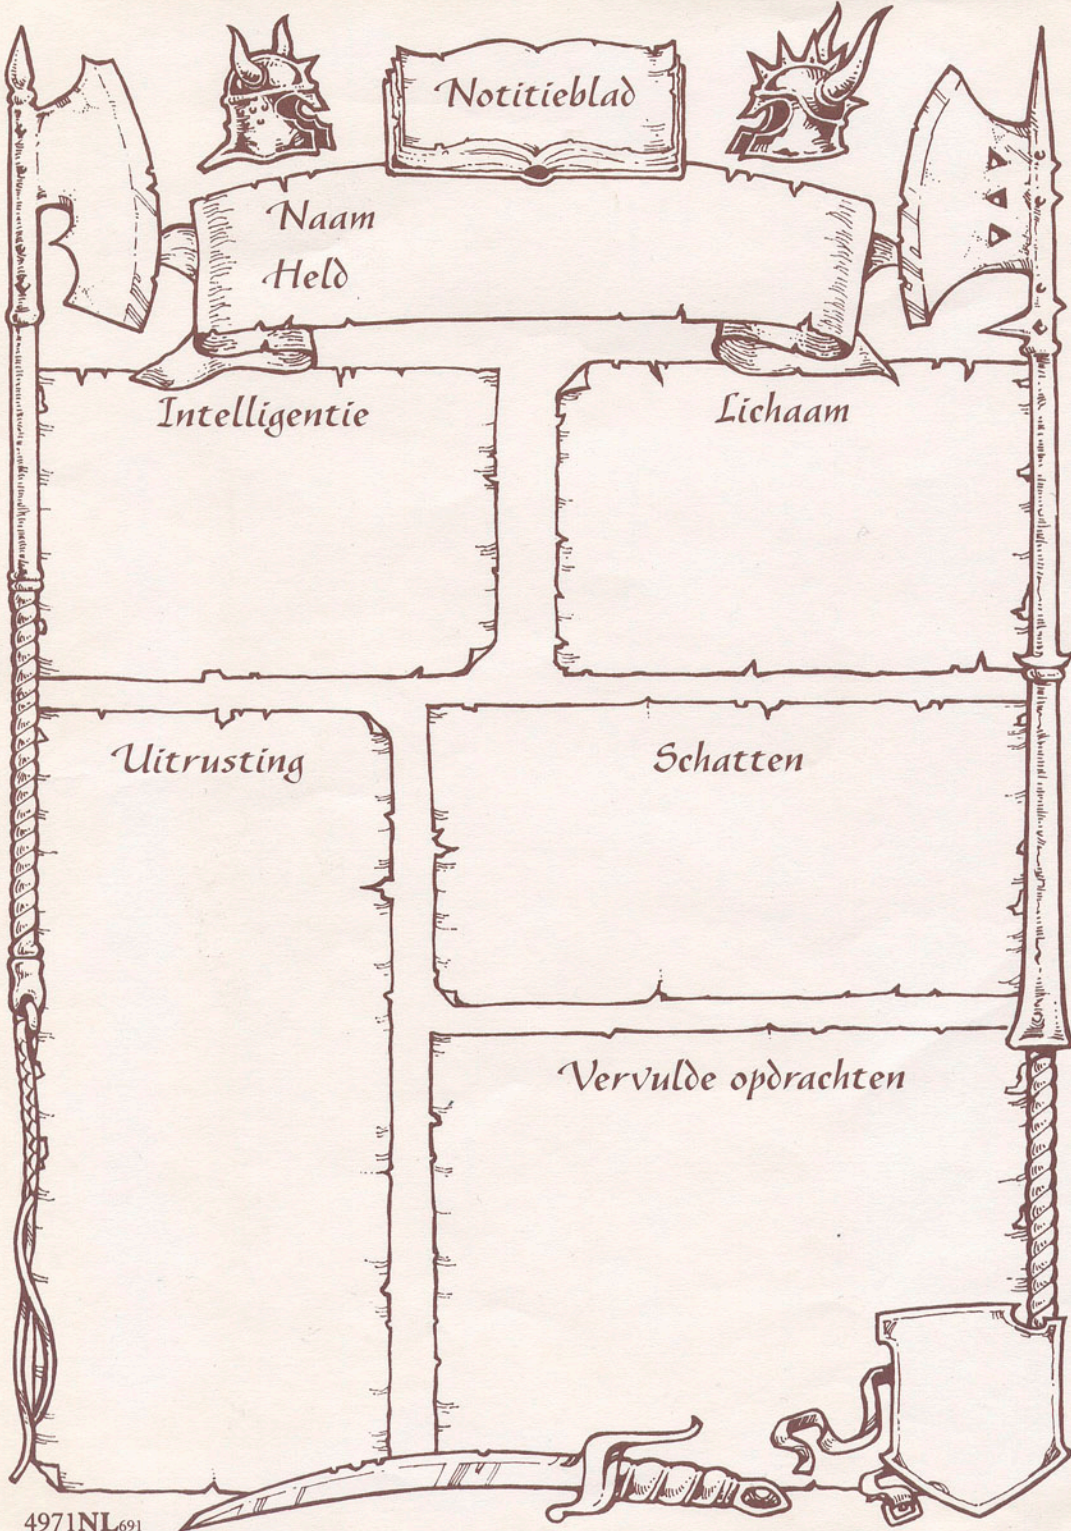 Notitieblad
Naam
Held
Intelligentie
Lichaam
Uitrusting
Schatten
Vervulde opdrachten
4971NL691